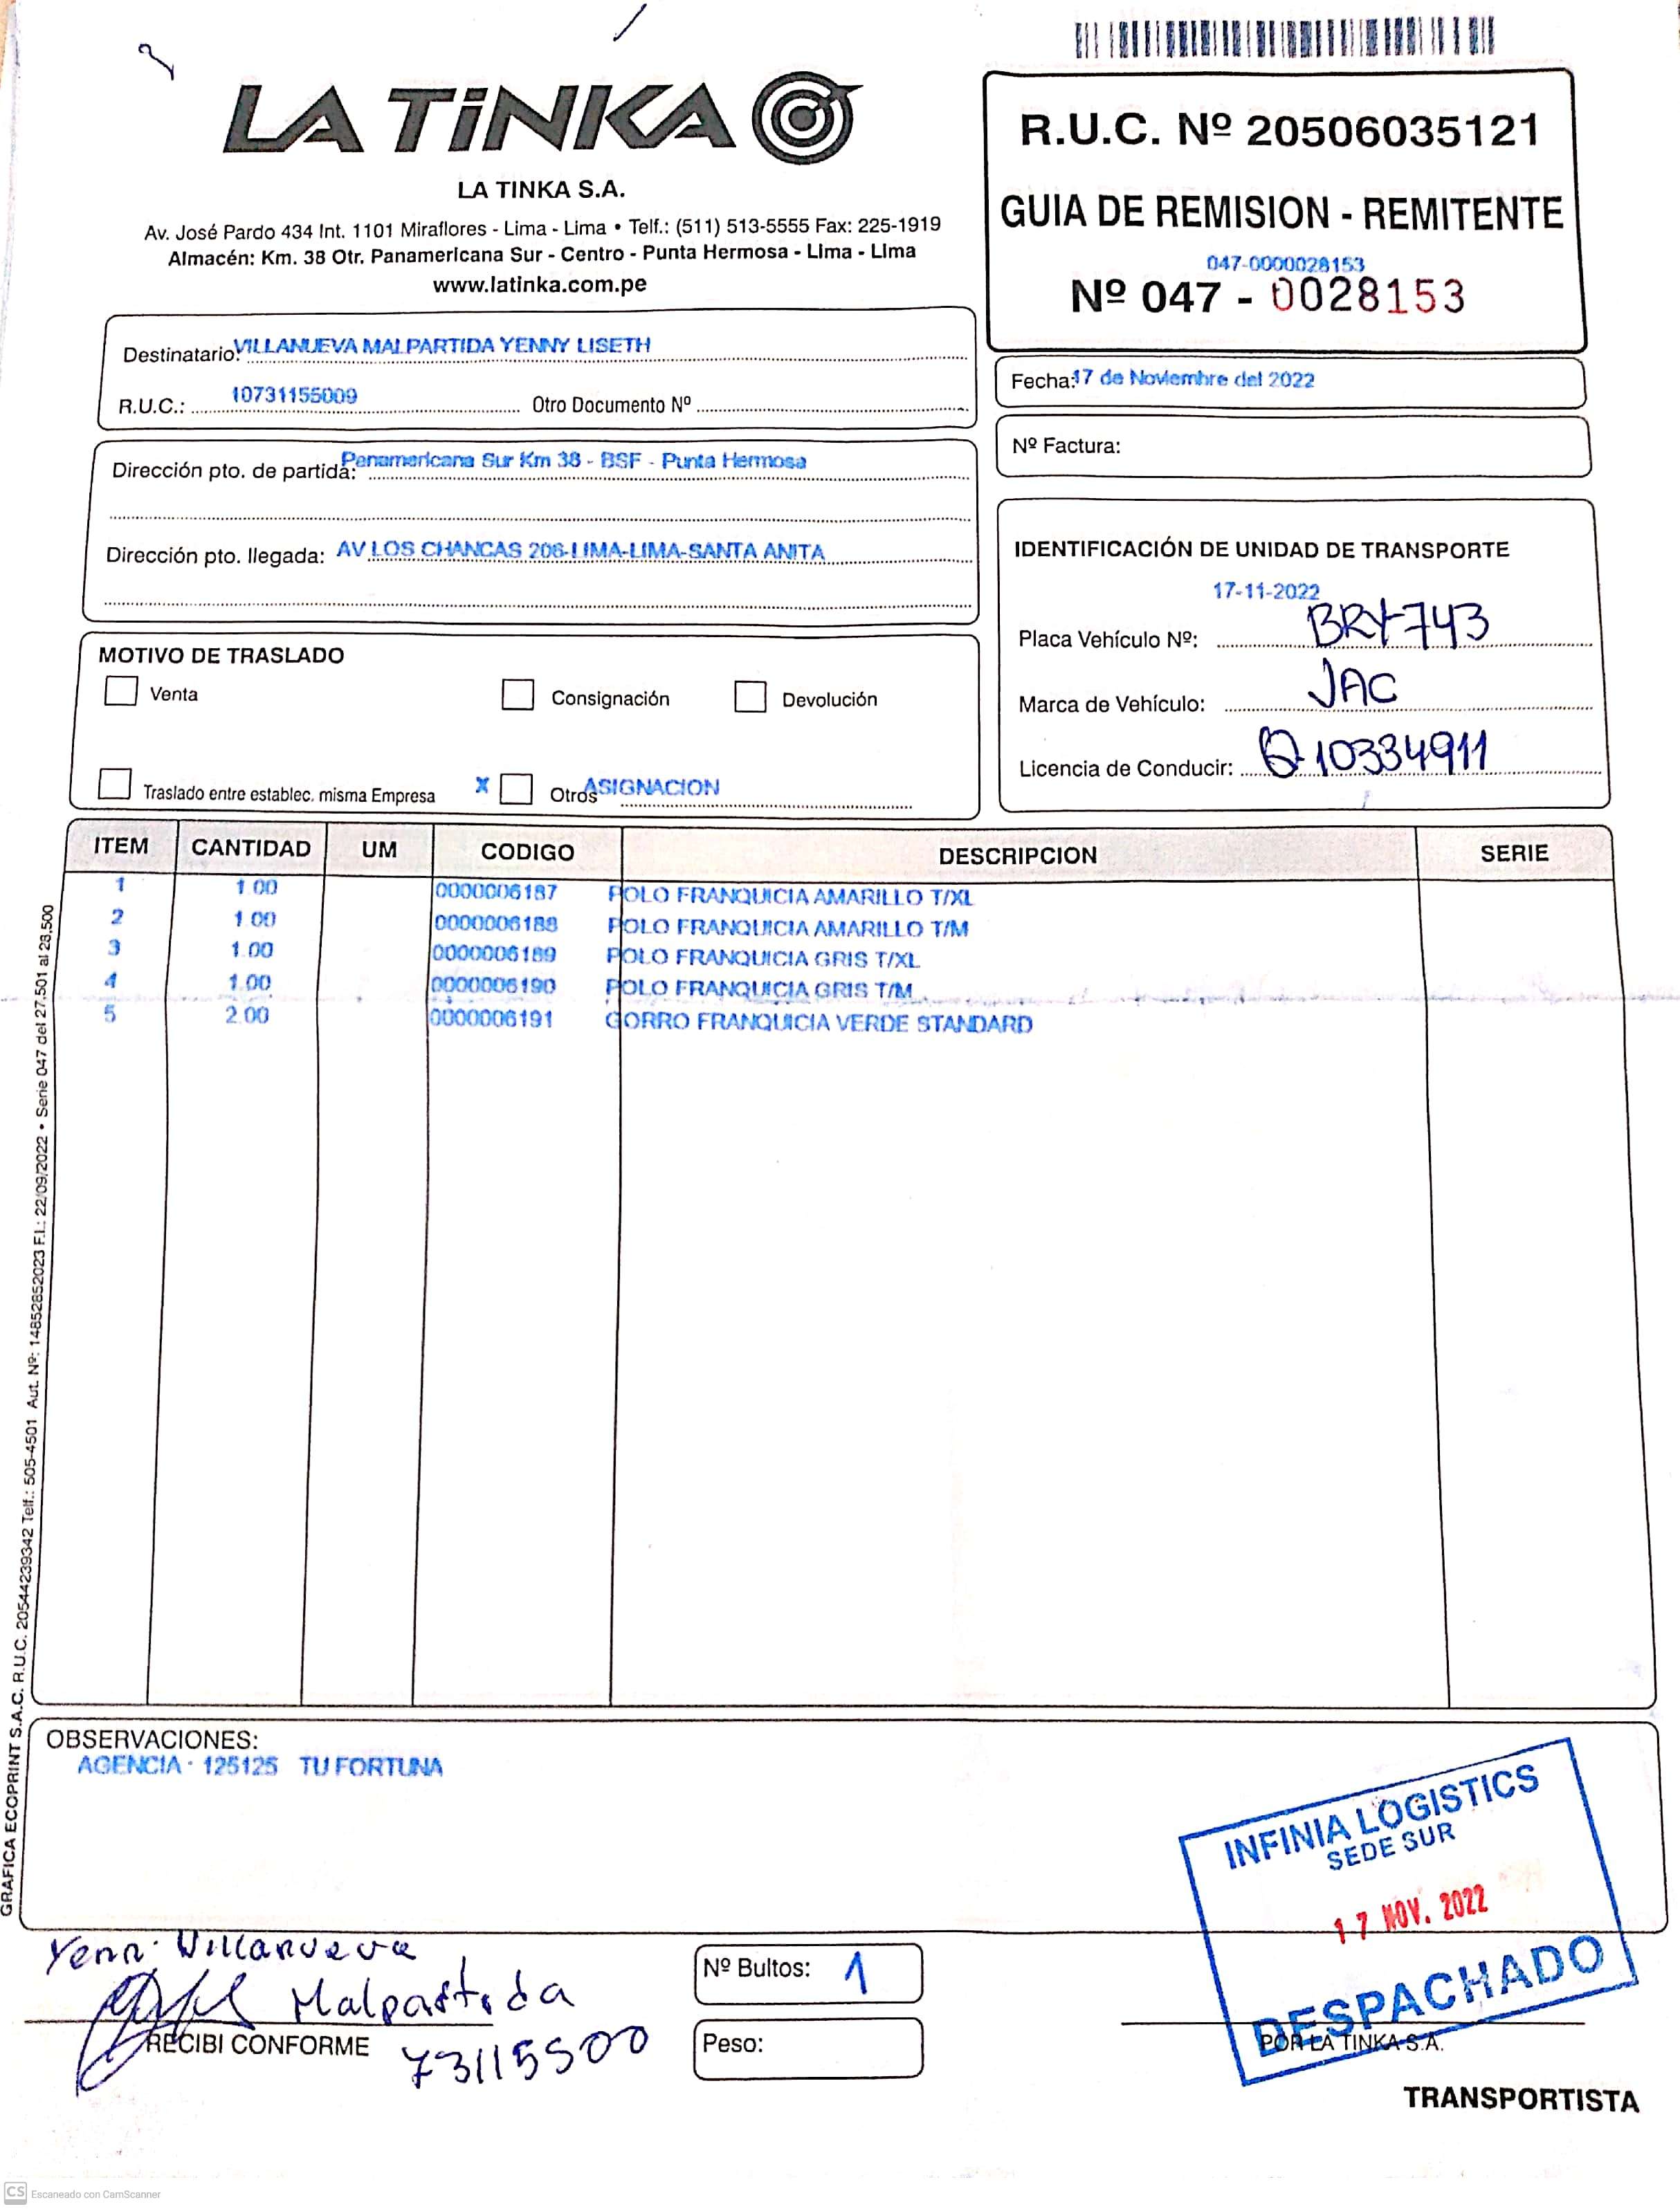 LA TiNKA
LA TINKA S.A.
Av. José Pardo 434 Int. 1101 Miraflores - Lima - Lima • Telf.: (511) 513-5555 Fax: 225-1919
Almacén: Km. 38 Otr. Panamericana Sur - Centro - Punta Hermosa - Lima - Lima
www.latinka.com.pe
R.U.C. Nº 20506035121
GUIA DE REMISION - REMITENTE
047-0000028153
Nº 047 - 0028153
Destinatario: VILLANUEVA MALPARTIDA YENNY LISETH
R.U.C.: 10731155009 Otro Documento Nº
Fecha: 17 de Noviembre del 2022
Nº Factura:
Dirección pto. de partida: Panamericana Sur Km 38 - BSF - Punta Hermosa
Dirección pto. llegada: AV LOS CHANCAS 206-LIMA-LIMA-SANTA ANITA
IDENTIFICACIÓN DE UNIDAD DE TRANSPORTE
17-11-2022
Placa Vehículo Nº: BRY-743
Marca de Vehículo: JAC
Licencia de Conducir: Q10334911
MOTIVO DE TRASLADO
Venta Consignación Devolución
Traslado entre establec. misma Empresa X Otros ASIGNACION
ITEM CANTIDAD UM CODIGO DESCRIPCION SERIE
1 1.00 0000006187 POLO FRANQUICIA AMARILLO T/XL
2 1.00 0000006188 POLO FRANQUICIA AMARILLO T/M
3 1.00 0000006189 POLO FRANQUICIA GRIS T/XL
4 1.00 0000006190 POLO FRANQUICIA GRIS T/M
5 2.00 0000006191 GORRO FRANQUICIA VERDE STANDARD
GRAFICA ECOPRINT S.A.C. R.U.C. 20544239342 Telf.: 505-4501 Aut. Nº: 14852852023 F.I.: 22/09/2022 • Serie 047 del 27.501 al 28.500
OBSERVACIONES:
AGENCIA - 125125 TU FORTUNA
INFINIA LOGISTICS
SEDE SUR
17 NOV. 2022
DESPACHADO
Villanueva
Malpartida
RECIBI CONFORME 73115500
Nº Bultos: 1
Peso:
POR LA TINKA S.A.
TRANSPORTISTA
CS Escaneado con CamScanner